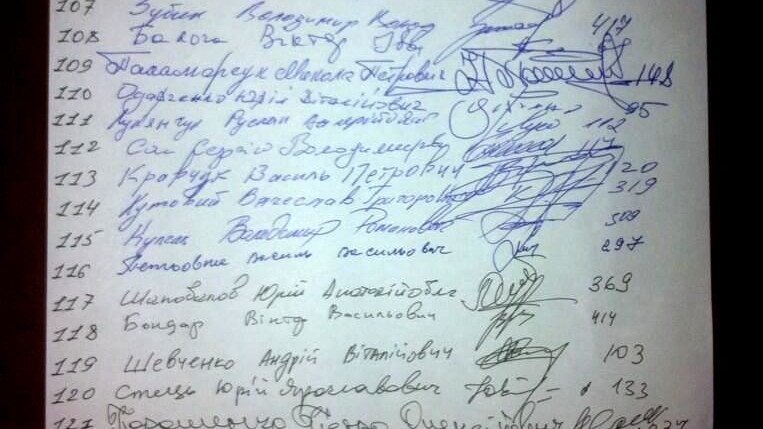 107 Зубик Володимир 417
108 Балога Віктор Іва
109 Паламарчук Микола Петрович 148
110 Одарченко Юрій Віталійович 95
111 Лук'янчук Руслан Валерійович 112
112 Сас Сергій Володимирович 117
113 Кравчук Василь Петрович 120
114 Кутовий Вячеслав Григорович 319
115 Купчак Володимир Романович 309
116 Василь Васильович 297
117 Шаповалов Юрій Анатолійович 369
118 Бондар Віктор Васильович 414
119 Шевченко Андрій Віталійович 103
120 Стець Юрій Ярославович 133
121 Порошенко Петро Олексійович